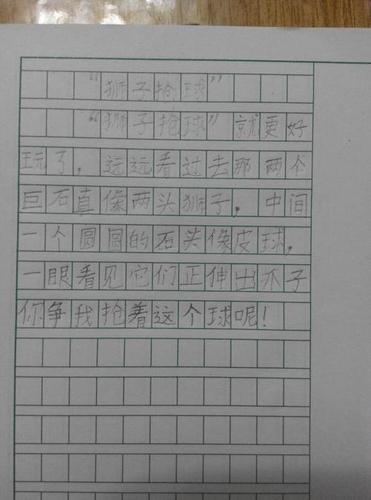 “狮子抢球”
“狮子抢球”就更好
玩了，远远看过去那两个
巨石真像两头狮子，中间
一个圆圆的石头像皮球，
一眼看见它们正伸出爪子
你争我抢着这个球呢！